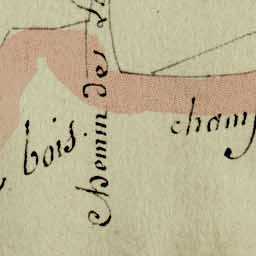 bois.
Chemin de
cham